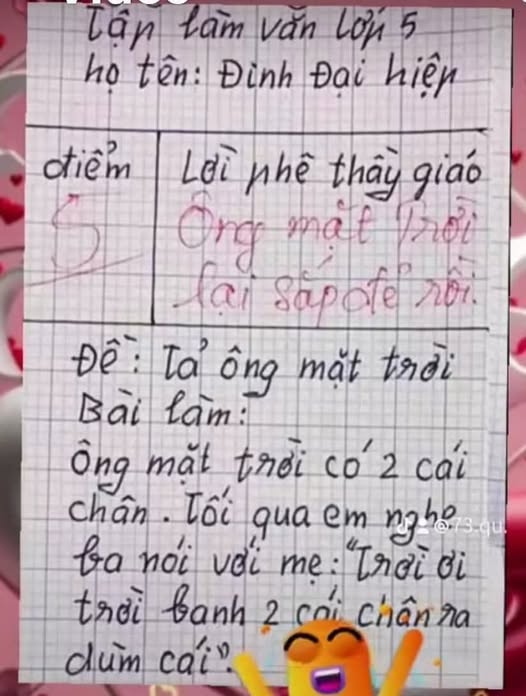 Tập làm văn lớp 5
họ tên: Đinh Đại hiệp
điểm
5
Lời phê thầy giáo
Ông mặt Trời
lại sắp đẻ rồi.
Đề: Tả ông mặt trời
Bài làm:
ông mặt trời có 2 cái
chân. Tối qua em nghe
ba nói với mẹ: "Trời ơi
trời banh 2 cái chân ra
dùm cái".